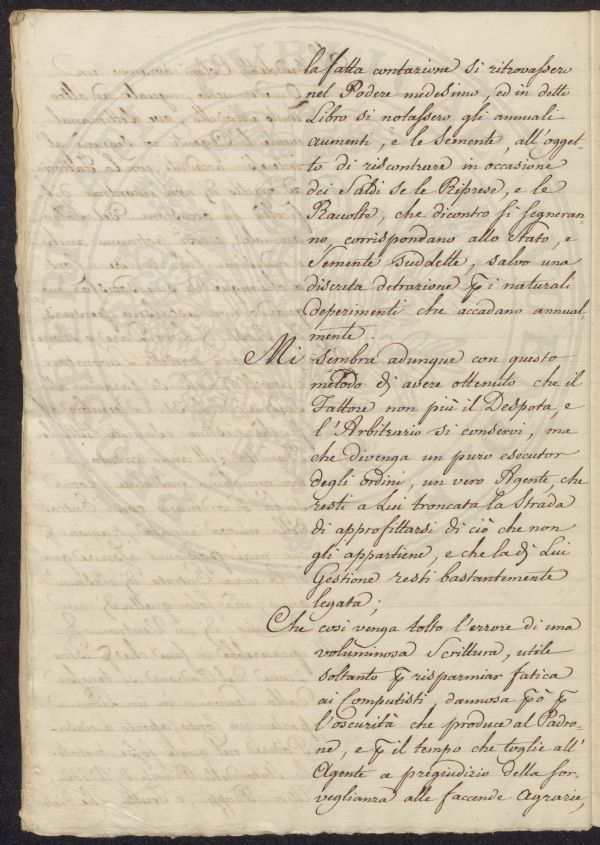 la fatta contazione si ritrovassero
nel Podere medesimo, ed in detto
Libro si notassero gli annuali
aumenti, e le Semente, all'ogget-
to di riscontrare in occasione
dei Saldi se le Riprese, e le
Raccolte, che dicontro si segneran-
no, corrispondano allo Stato, e
Semente suddette, salvo una
discreta detrazione ꝑ i naturali
deperimenti che accadano annual-
mente.
Mi sembra adunque con questo
metodo di avere ottenuto che il
Fattore non più il Despota, e
l'Arbitrario si conservi, ma
che divenga un puro esecutor
degli ordini, un vero Agente, che
resti a Lui troncata la Strada
di approfittarsi di ciò che non
gli appartiene, e che la di Lui
Gestione resti bastantemente
legata;
Che così venga tolto l'errore di una
voluminosa Scrittura, utile
soltanto ꝑ risparmiar fatica
ai Computisti, dannosa ꝑò ꝑ
l'oscurità che produce al Padro-
ne, e ꝑ il tempo che toglie all'
Agente a pregiudizio della sor-
veglianza alle faccende Agrarie,